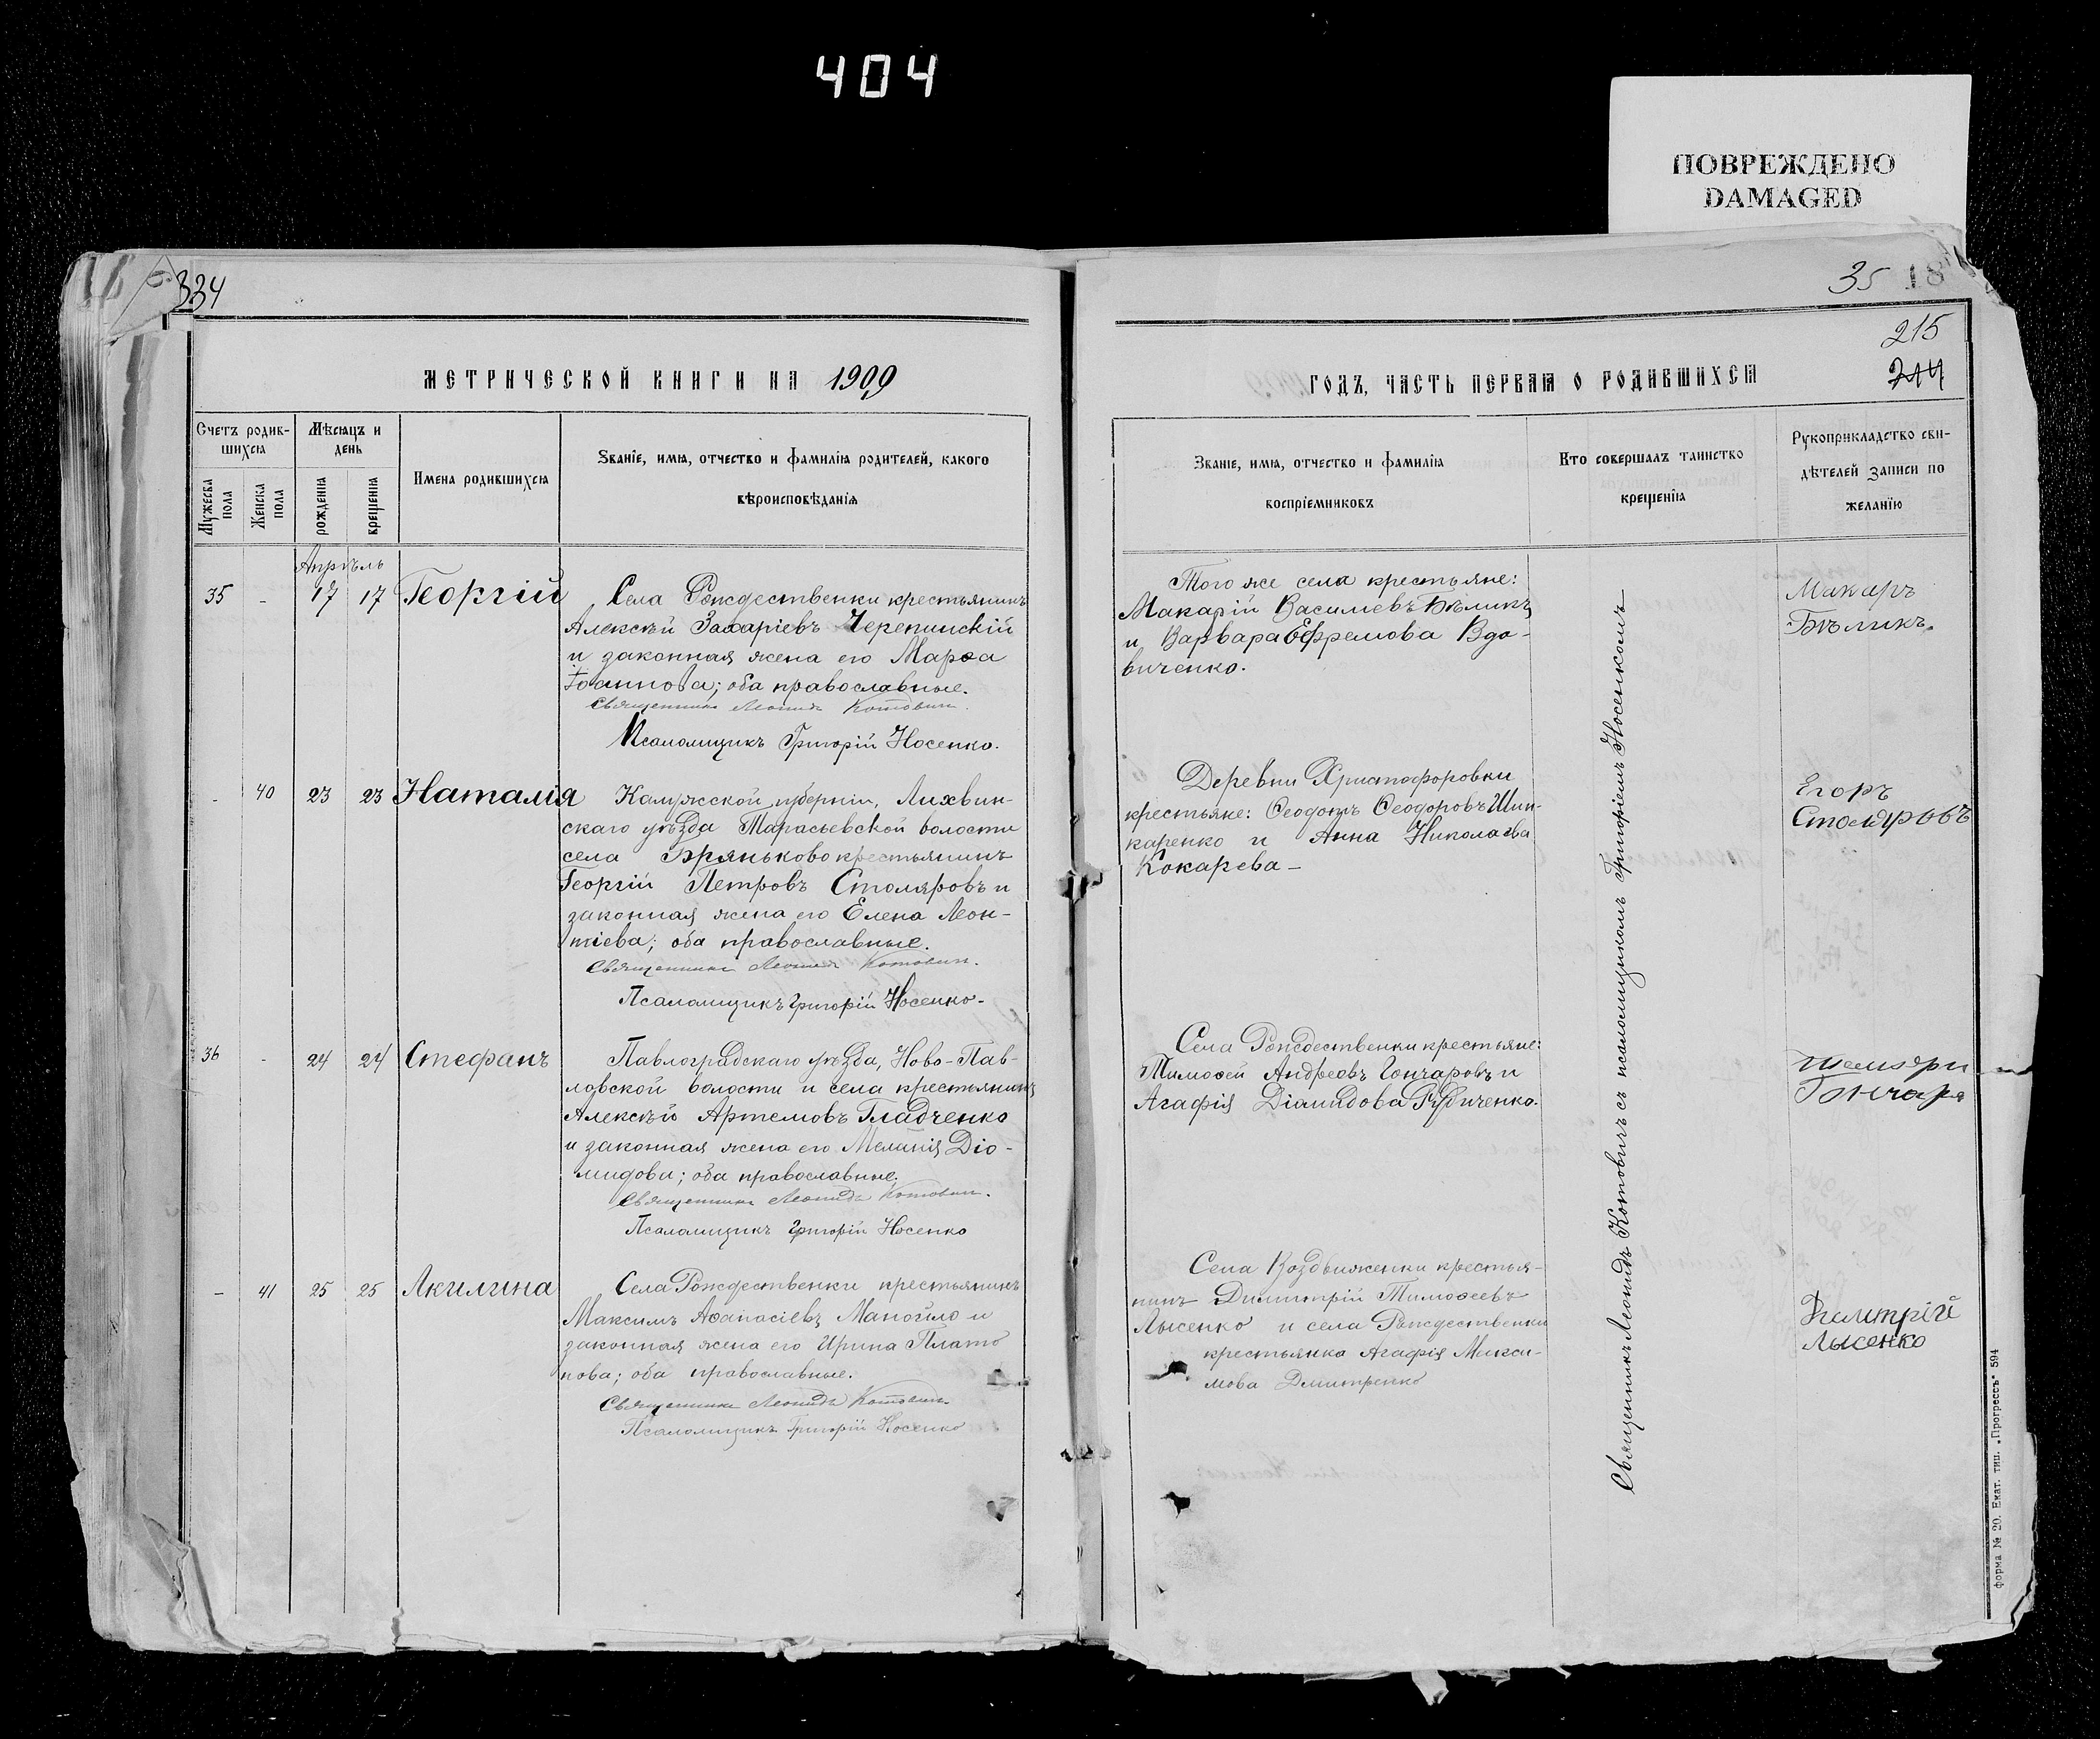 404
ПОВРЕЖДЕНО
DAMAGED
334
МЕТРИЧЕСКОЙ КНИГИ НА 1909
Счетъ родив-
шихся
Мѣсяцъ и
день
Имена родившихся
Званіе, имя, отчество и фамилія родителей, какого
вѣроисповѣданія
Мужеска
пола
Женска
пола
рожденія
крещенія
Апрѣль
35 - 17 17 Георгій
Села Рождественки крестьянинъ
Алексѣй Захаріевъ Черепинскій
и законная жена его Марѳа
Іоаннова; оба православные.
Священникъ Леонидъ Котовичъ.
Псаломщикъ Григорій Носенко.
- 40 23 23 Наталія
Калужской губерніи, Лихвин-
скаго уѣзда Тарасьевской волости
села Бряньково крестьянинъ
Георгій Петровъ Столяровъ и
законная жена его Елена Леон-
тіева; оба православные.
Священникъ Леонидъ Котовичъ.
Псаломщикъ Григорій Носенко.
36 - 24 24 Стефанъ
Павлоградскаго уѣзда, Ново-Пав-
ловской волости и села крестьянинъ
Алексѣй Артемовъ Гладченко
и законная жена его Меланія Діо-
мидова; оба православные.
Священникъ Леонидъ Котовичъ.
Псаломщикъ Григорій Носенко
- 41 25 25 Акилина
Села Рождественки крестьянинъ
Максимъ Аѳанасіевъ Манойло и
законная жена его Ирина Плато
нова; оба православные.
Священникъ Леонидъ Котовичъ
Псаломщикъ Григорій Носенко
35 18
215
214
ГОДЪ, ЧАСТЬ ПЕРВАЯ О РОДИВШИХСЯ
Званіе, имя, отчество и фамилія
воспріемниковъ
Кто совершалъ таинство
крещенія
Рукоприкладство сви-
дѣтелей записи по
желанію
Того же села крестьяне:
Макарій Василіевъ Бѣликъ
и Варвара Ефремова Вдо-
виченко.
Макаръ
Бѣликъ.
Деревни Христофоровки
крестьяне: Ѳеодотъ Ѳеодоровъ Шин-
каренко и Анна Николаева
Кокарева -
Егоръ
Столяровъ
Села Рождественки крестьяне:
Тимоѳей Андреевъ Гончаровъ и
Агафія Діамидова Рудиченко.
Гончаръ
Села Воздвиженки крестья-
нинъ Димитрій Тимоѳеевъ
Лысенко и села Рождественки
крестьянка Агафія Макси-
мова Дмитренко
Дмитрій
Лысенко
Священникъ Леонидъ Котовичъ съ псаломщикомъ Григоріемъ Носенкомъ
форма № 20. Екат. тип. „Прогрессъ" 594